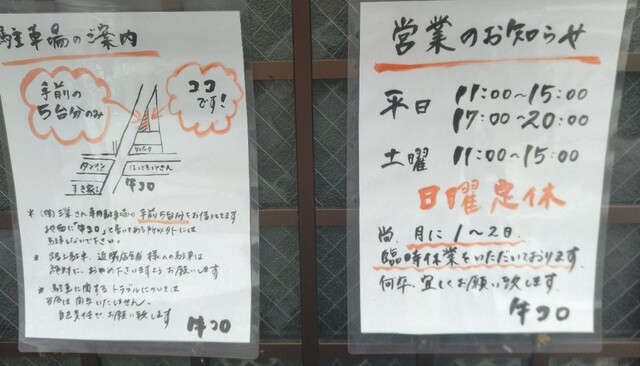 駐車場のご案内
手前の
5台分のみ
ココ
です!
すき家
ほっともっとさん
牛コロ
手前5台分をお借りしてます
地面に「牛コロ」と書いてある所以外には
駐車しないで下さい。
※ 路上駐車、近隣店舗様への駐車は
絶対に、おやめ下さいますようお願いします
※ 駐車に関するトラブルについては
当店は関与いたしません。
自己責任でお願い致します
牛コロ
営業のお知らせ
平日 11:00~15:00
17:00~20:00
土曜 11:00~15:00
日曜定休
尚、月に1~2日
臨時休業をいただいております
何卒、宜しくお願い致します
牛コロ